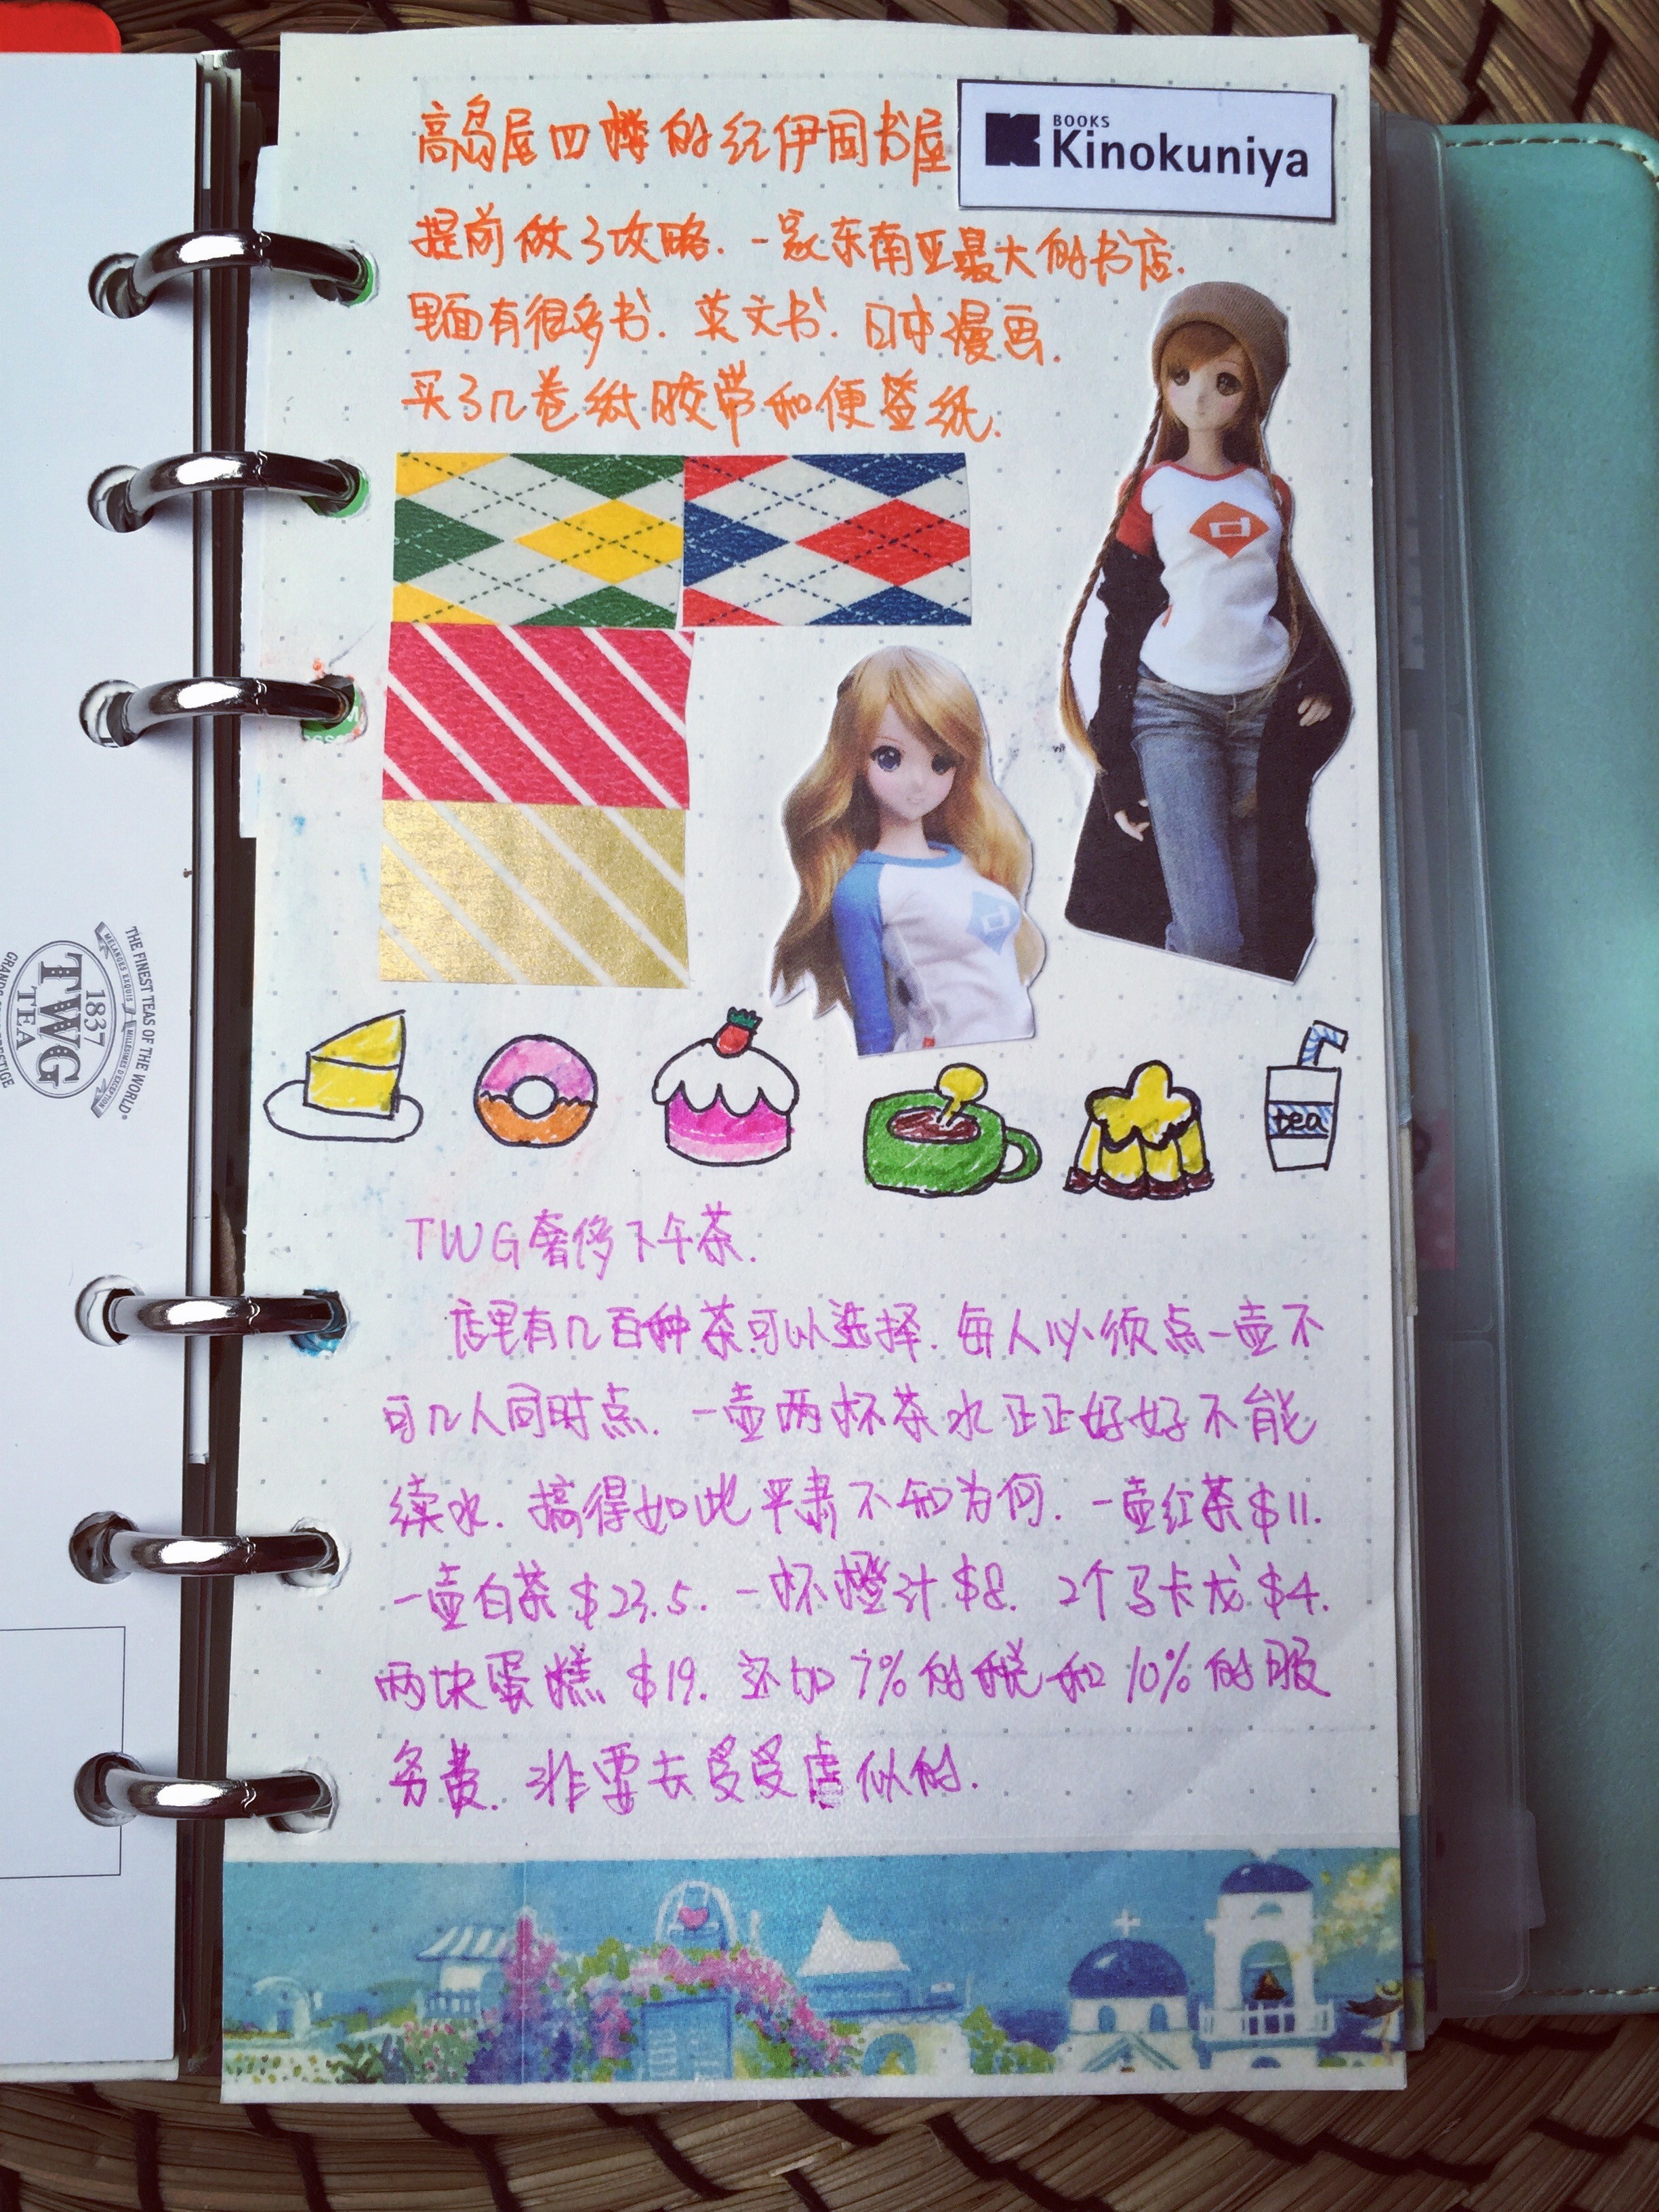 高岛屋四楼的纪伊国书屋
BOOKS
Kinokuniya
提前做了攻略.一家东南亚最大的书店.
里面有很多书.英文书.日本漫画.
买了几卷纸胶带和便签纸.
THE FINEST TEAS OF THE WORLD
MELANGES EXQUIS
MILLESIMES D'EXCEPTION
1837
TWG
TEA
tea
TWG奢侈下午茶.
店里有几百种茶可以选择.每人必须点一壶不
可几人同时点.一壶两杯茶水正正好好不能
续水.搞得如此严肃不知为何.一壶红茶$11.
一壶白茶$23.5.一杯橙汁$8.2个马卡龙$4.
两块蛋糕$19.还加7%的税和10%的服
务费.非要去受受虐似的.